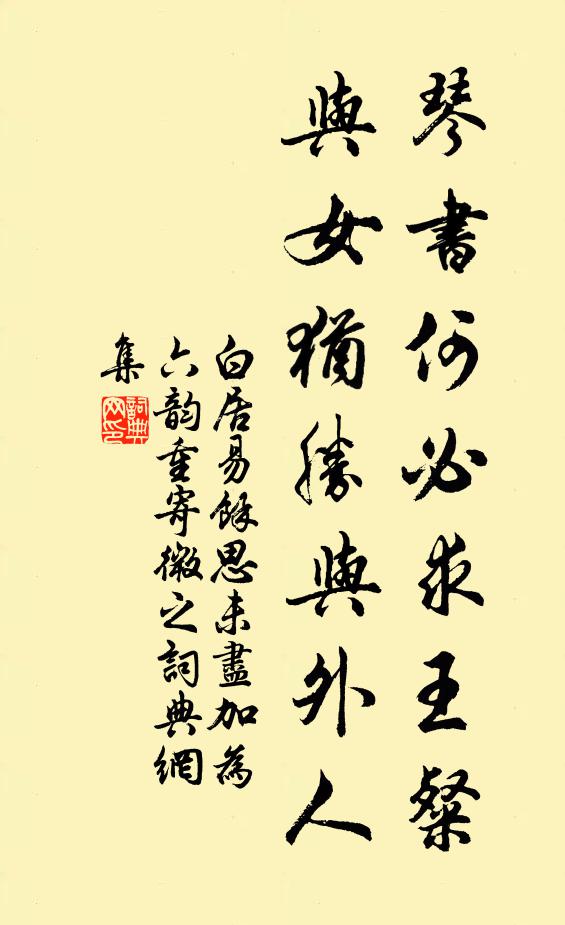 琴書何必求王粲
與女猶勝與外人
白居易餘思未盡加為
六韵重寄微之詞典網
集
詞典
网印